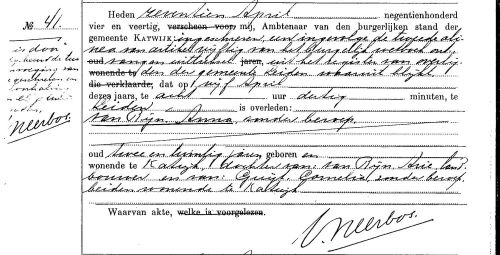 № 41.
Heden zeventien April negentienhonderd
vier en veertig, verscheen voor mij, Ambtenaar van den burgerlijken stand der
gemeente KATWIJK, ingeschreven, ingevolge de
van artikel vijftig van het Burgerlijk Wetboek
oud van een uittreksel jaren, uit het register van overlij-
wonende te den der gemeente Leiden waaruit blijkt
die verklaarde, dat op vijf April
dezes jaars, te acht uur dertig minuten, te
Leiden is overleden:
van Rijn, Anna, zonder beroep,
oud twee en twintig jaren geboren en
wonende te Katwijk, dochter van: van Rijn, Arie, land-
bouwer en van: Guijt, Cornelia, zonder beroep,
beiden wonende te Katwijk.
Waarvan akte, welke is voorgelezen.
Neerbos
Neerbos.